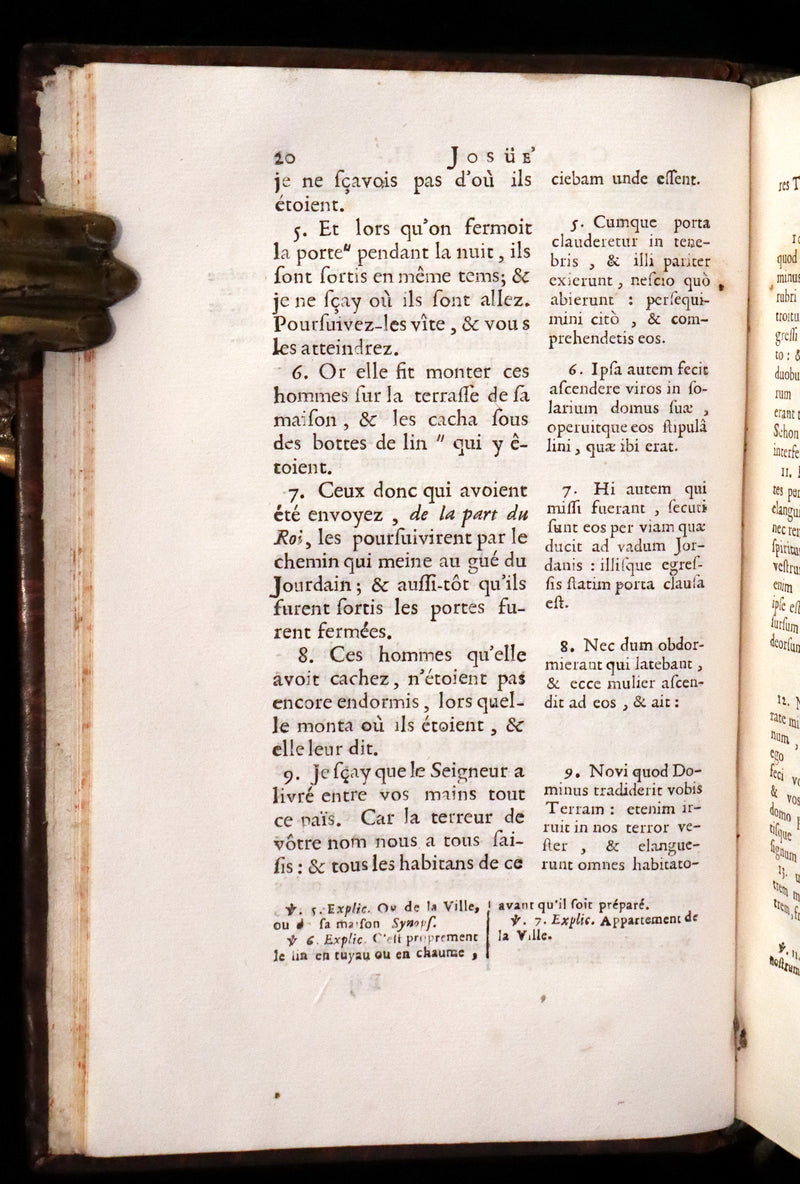 20 JOSÜE'
je ne ſçavois pas d'où ils
étoient.
5. Et lors qu'on fermoit
la porte" pendant la nuit, ils
ſont ſortis en même tems; &
je ne ſçay où ils ſont allez.
Pourſuivez-les vîte, & vous
les atteindrez.
6. Or elle fit monter ces
hommes ſur la terraſſe de ſa
maiſon, & les cacha ſous
des bottes de lin " qui y ê-
toient.
7. Ceux donc qui avoient
été envoyez, de la part du
Roi, les pourſuivirent par le
chemin qui meine au gué du
Jourdain; & auſſi-tôt qu'ils
furent ſortis les portes fu-
rent fermées.
8. Ces hommes qu'elle
avoit cachez, n'étoient pas
encore endormis, lors quel-
le monta où ils étoient, &
elle leur dit.
9. Je ſçay que le Seigneur a
livré entre vos mains tout
ce païs. Car la terreur de
vôtre nom nous a tous ſai-
ſis: & tous les habitans de ce
ciebam unde eſſent.
5. Cumque porta
clauderetur in tene-
bris, & illi pariter
exierunt, neſcio quò
abierunt : perſequi-
mini citò, & com-
prehendetis eos.
6. Ipſa autem fecit
aſcendere viros in ſo-
larium domus ſuæ,
operuitque eos ſtipulâ
lini, quæ ibi erat.
7. Hi autem qui
miſſi fuerant, ſecuti
ſunt eos per viam quæ
ducit ad vadum Jor-
danis : illiſque egreſ-
ſis ſtatim porta clauſa
eſt.
8. Nec dum obdor-
mierant qui latebant,
& ecce mulier aſcen-
dit ad eos, & ait :
9. Novi quod Do-
minus tradiderit vobis
Terram : etenim ir-
ruit in nos terror ve-
ſter, & elangue-
runt omnes habitato-
℣. 5. Explic. Ou de la Ville,
ou ſa maiſon Synopſ.
℣ 6. Explic. C'eſt proprement
le lin en tuyau ou en chaume,
avant qu'il ſoit préparé.
℣. 7. Explic. Appartement de
la Ville.
res T
quod
minus
rubri
troitu
greſſi
to : &
duobu
rum
erant t
Sehon
interfe
11.
tes per
elangui
nec rem
ſpiritus
veſtrum
enim
ipſe eſt
ſurſum
deorſum
12.
rate mi
num,
ego
feci
& vos
domo p
tiſque
ſignum
13.